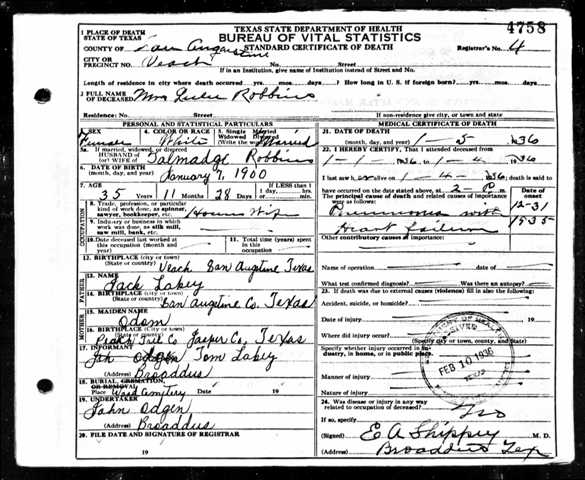 TEXAS STATE DEPARTMENT OF HEALTH
BUREAU OF VITAL STATISTICS
STANDARD CERTIFICATE OF DEATH
4758
1 PLACE OF DEATH
STATE OF TEXAS
COUNTY OF San Augustine
Registrar's No. 4
CITY OR
PRECINCT NO. Veach No. Street
If in an Institution, give name of Institution instead of Street and No.
Length of residence in city where death occurred yrs. mos. days. How long in U. S. if foreign born? yrs. mos. days
2 FULL NAME
OF DECEASED Mrs Robbins
Residence: No. Street If non-residence give city, or town and state
PERSONAL AND STATISTICAL PARTICULARS
3. SEX
Female
4. COLOR OR RACE
White
5. Single Married
Widowed Divorced
(Write the word) Married
5a. If married, widowed, or divorced
HUSBAND OF
(or) WIFE OF Talmadge Robbins
6. DATE OF BIRTH
(month, day, and year) January 7, 1900
7. AGE
35 Years 11 Months 28 Days
IF LESS THAN
1 day, hrs. min.
OCCUPATION
8. Trade, profession, or particular
kind of work done, as spinner,
sawyer, bookkeeper, etc. House Wife
9. Industry or business in which
work was done, as silk mill,
saw mill, bank, etc.
10. Date deceased last worked at
this occupation (month and
year)
11. Total time (years) spent
in this occupation
12. BIRTHPLACE (city or town)
(State or country) Veach San Augtine Texas
FATHER
13. NAME
Jack Lakey
14. BIRTHPLACE (city or town)
(State or country) San Augtine Co. Texas
MOTHER
15. MAIDEN NAME
Odom
16. BIRTHPLACE (City or town)
(State or country)
Co Jasper Co, Texas
17. INFORMANT
Tom Lakey
(Address) Broaddus
18. BURIAL, CREMATION,
OR REMOVAL
Place Cemetery Date 19
19. UNDERTAKER
John Odgen
(Address) Broaddus
20. FILE DATE AND SIGNATURE OF REGISTRAR
19
MEDICAL CERTIFICATE OF DEATH
21. DATE OF DEATH
(month, day, and year) 1 - 5 1936
22. I HEREBY CERTIFY, That I attended deceased from
1 - 1936 to 1 - 4 - 1936
I last saw alive on 1 - 4 - 1936; death is said to
have occurred on the date stated above, at 2 - P m.
The principal cause of death and related causes of
importance were as follows:
Date of
onset
Pneumonia with
Heart failure
12-31
1935
Other contributory causes of importance:
Name of operation date of
What test confirmed diagnosis? Was there an autopsy?
23. If death was due to external causes (violence) fill in also the following:
Accident, suicide, or homicide?
Date of injury 19
Where did injury occur?
(Specify city or town, county, and State)
Specify whether injury occurred in industry, in home, or in public place.
Manner of injury
Nature of injury
FEB 10 1936
24. Was disease or injury in any way
related to occupation of deceased? No
If so, specify
(Signed) E A Shippey M. D.
(Address) Broaddus Tex